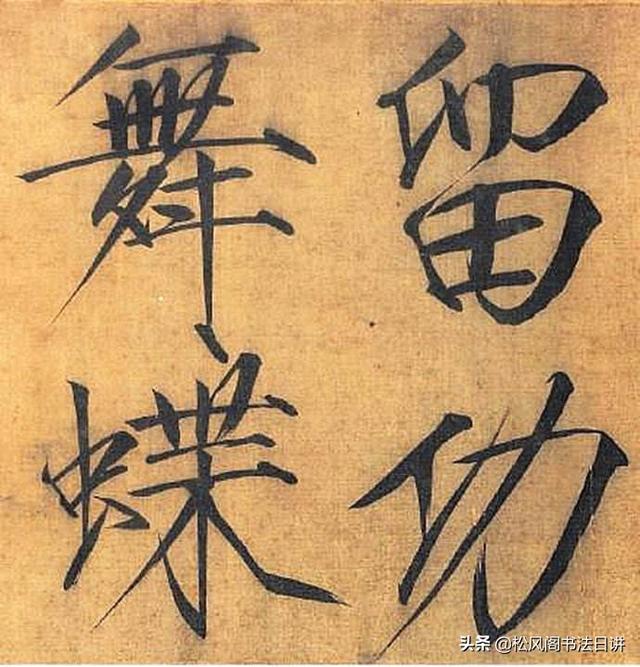 留功
舞蝶
头条 @松风阁书法日讲